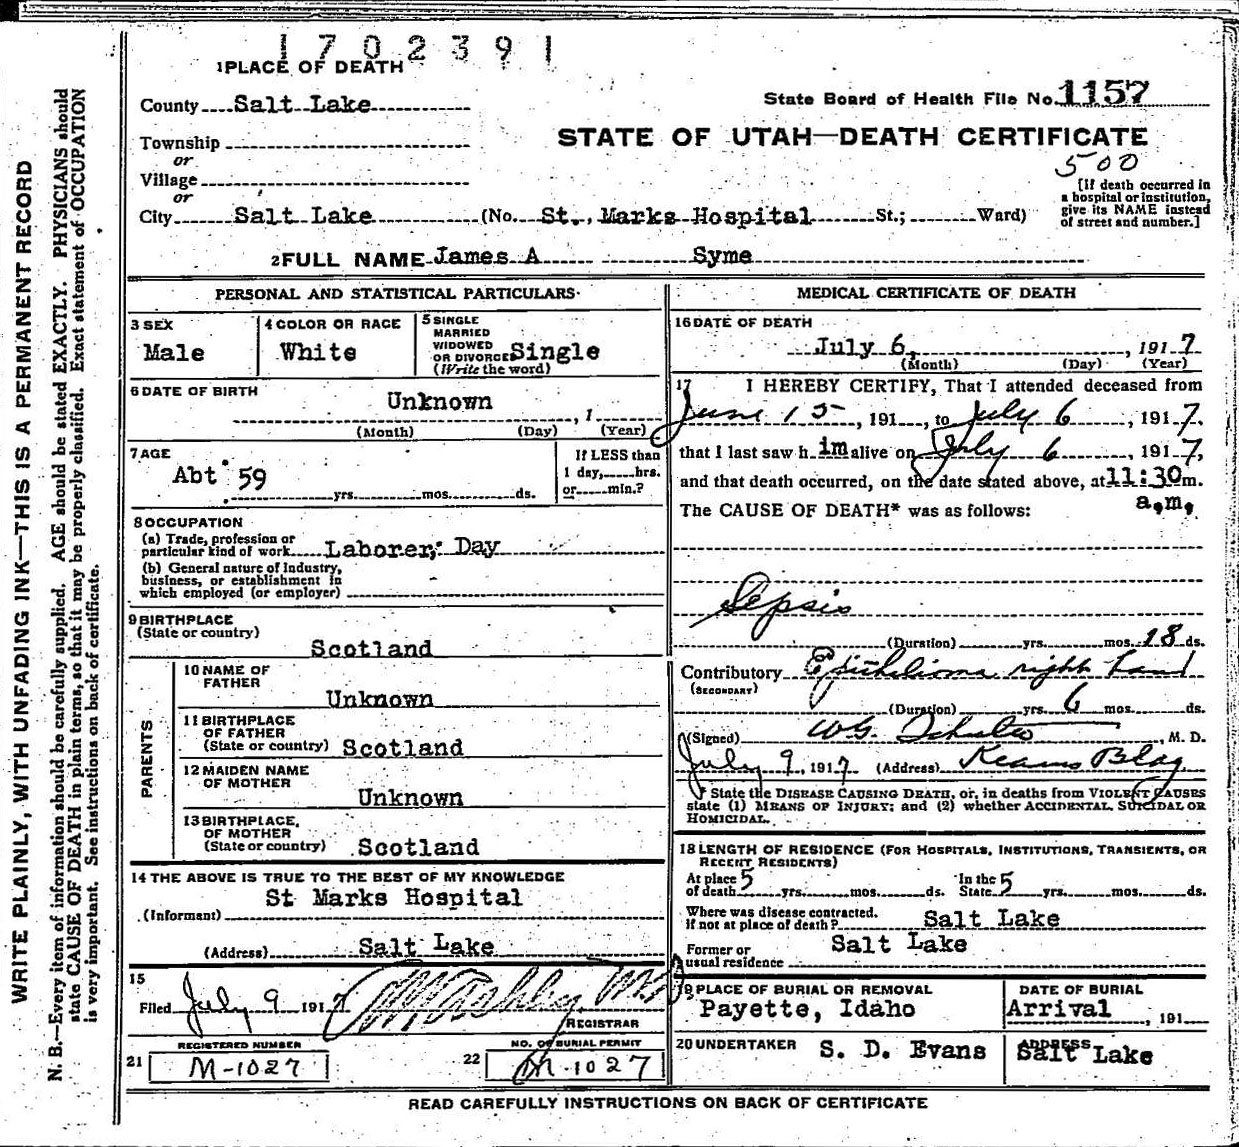 1702391
1 PLACE OF DEATH
County Salt Lake
State Board of Health File No. 1157
Township
or
Village
or
STATE OF UTAH—DEATH CERTIFICATE
500
[If death occurred in
a hospital or institution,
give its NAME instead
of street and number.]
City Salt Lake (No. St., Marks Hospital St.; Ward)
2 FULL NAME James A Syme
PERSONAL AND STATISTICAL PARTICULARS
3 SEX
Male
4 COLOR OR RACE
White
5 SINGLE
MARRIED
WIDOWED
OR DIVORCED Single
(Write the word)
6 DATE OF BIRTH
Unknown
, 1
(Month) (Day) (Year)
7 AGE
Abt 59
yrs. mos. ds.
If LESS than
1 day, hrs.
or min.?
8 OCCUPATION
(a) Trade, profession or
particular kind of work Laborer, Day
(b) General nature of Industry,
business, or establishment in
which employed (or employer)
9 BIRTHPLACE
(State or country)
Scotland
PARENTS
10 NAME OF
FATHER
Unknown
11 BIRTHPLACE
OF FATHER
(State or country) Scotland
12 MAIDEN NAME
OF MOTHER
Unknown
13 BIRTHPLACE,
OF MOTHER
(State or country) Scotland
14 THE ABOVE IS TRUE TO THE BEST OF MY KNOWLEDGE
St Marks Hospital
(Informant)
(Address) Salt Lake
15
Filed July 9 1917
M.D.
REGISTRAR
REGISTERED NUMBER
21 M-1027
NO. OF BURIAL PERMIT
22 M-1027
MEDICAL CERTIFICATE OF DEATH
16 DATE OF DEATH
July 6, , 1917
(Month) (Day) (Year)
17 I HEREBY CERTIFY, That I attended deceased from
June 15 , 191 , to July 6 , 1917,
that I last saw h im alive on July 6 , 1917,
and that death occurred, on the date stated above, at 11:30 m.
a,m,
The CAUSE OF DEATH* was as follows:
Sepsis
(Duration) yrs. mos. 18 ds.
Contributory Epithelioma right hand
(SECONDARY)
(Duration) yrs. 6 mos. ds.
(Signed) W.G. Schulte , M. D.
July 9, 1917 (Address) Kearns Bldg.
* State the DISEASE CAUSING DEATH, or, in deaths from VIOLENT CAUSES
state (1) MEANS OF INJURY; and (2) whether ACCIDENTAL, SUICIDAL OR
HOMICIDAL.
18 LENGTH OF RESIDENCE (FOR HOSPITALS, INSTITUTIONS, TRANSIENTS, OR
RECENT RESIDENTS)
At place In the
of death 5 yrs. mos. ds. State 5 yrs. mos. ds.
Where was disease contracted.
if not at place of death? Salt Lake
Former or
usual residence Salt Lake
19 PLACE OF BURIAL OR REMOVAL
Payette, Idaho
DATE OF BURIAL
Arrival , 191
20 UNDERTAKER S. D. Evans
ADDRESS
Salt Lake
READ CAREFULLY INSTRUCTIONS ON BACK OF CERTIFICATE
WRITE PLAINLY, WITH UNFADING INK—THIS IS A PERMANENT RECORD
N. B.—Every item of information should be carefully supplied. AGE should be stated EXACTLY. PHYSICIANS should
state CAUSE OF DEATH in plain terms, so that it may be properly classified. Exact statement of OCCUPATION
is very important. See instructions on back of certificate.